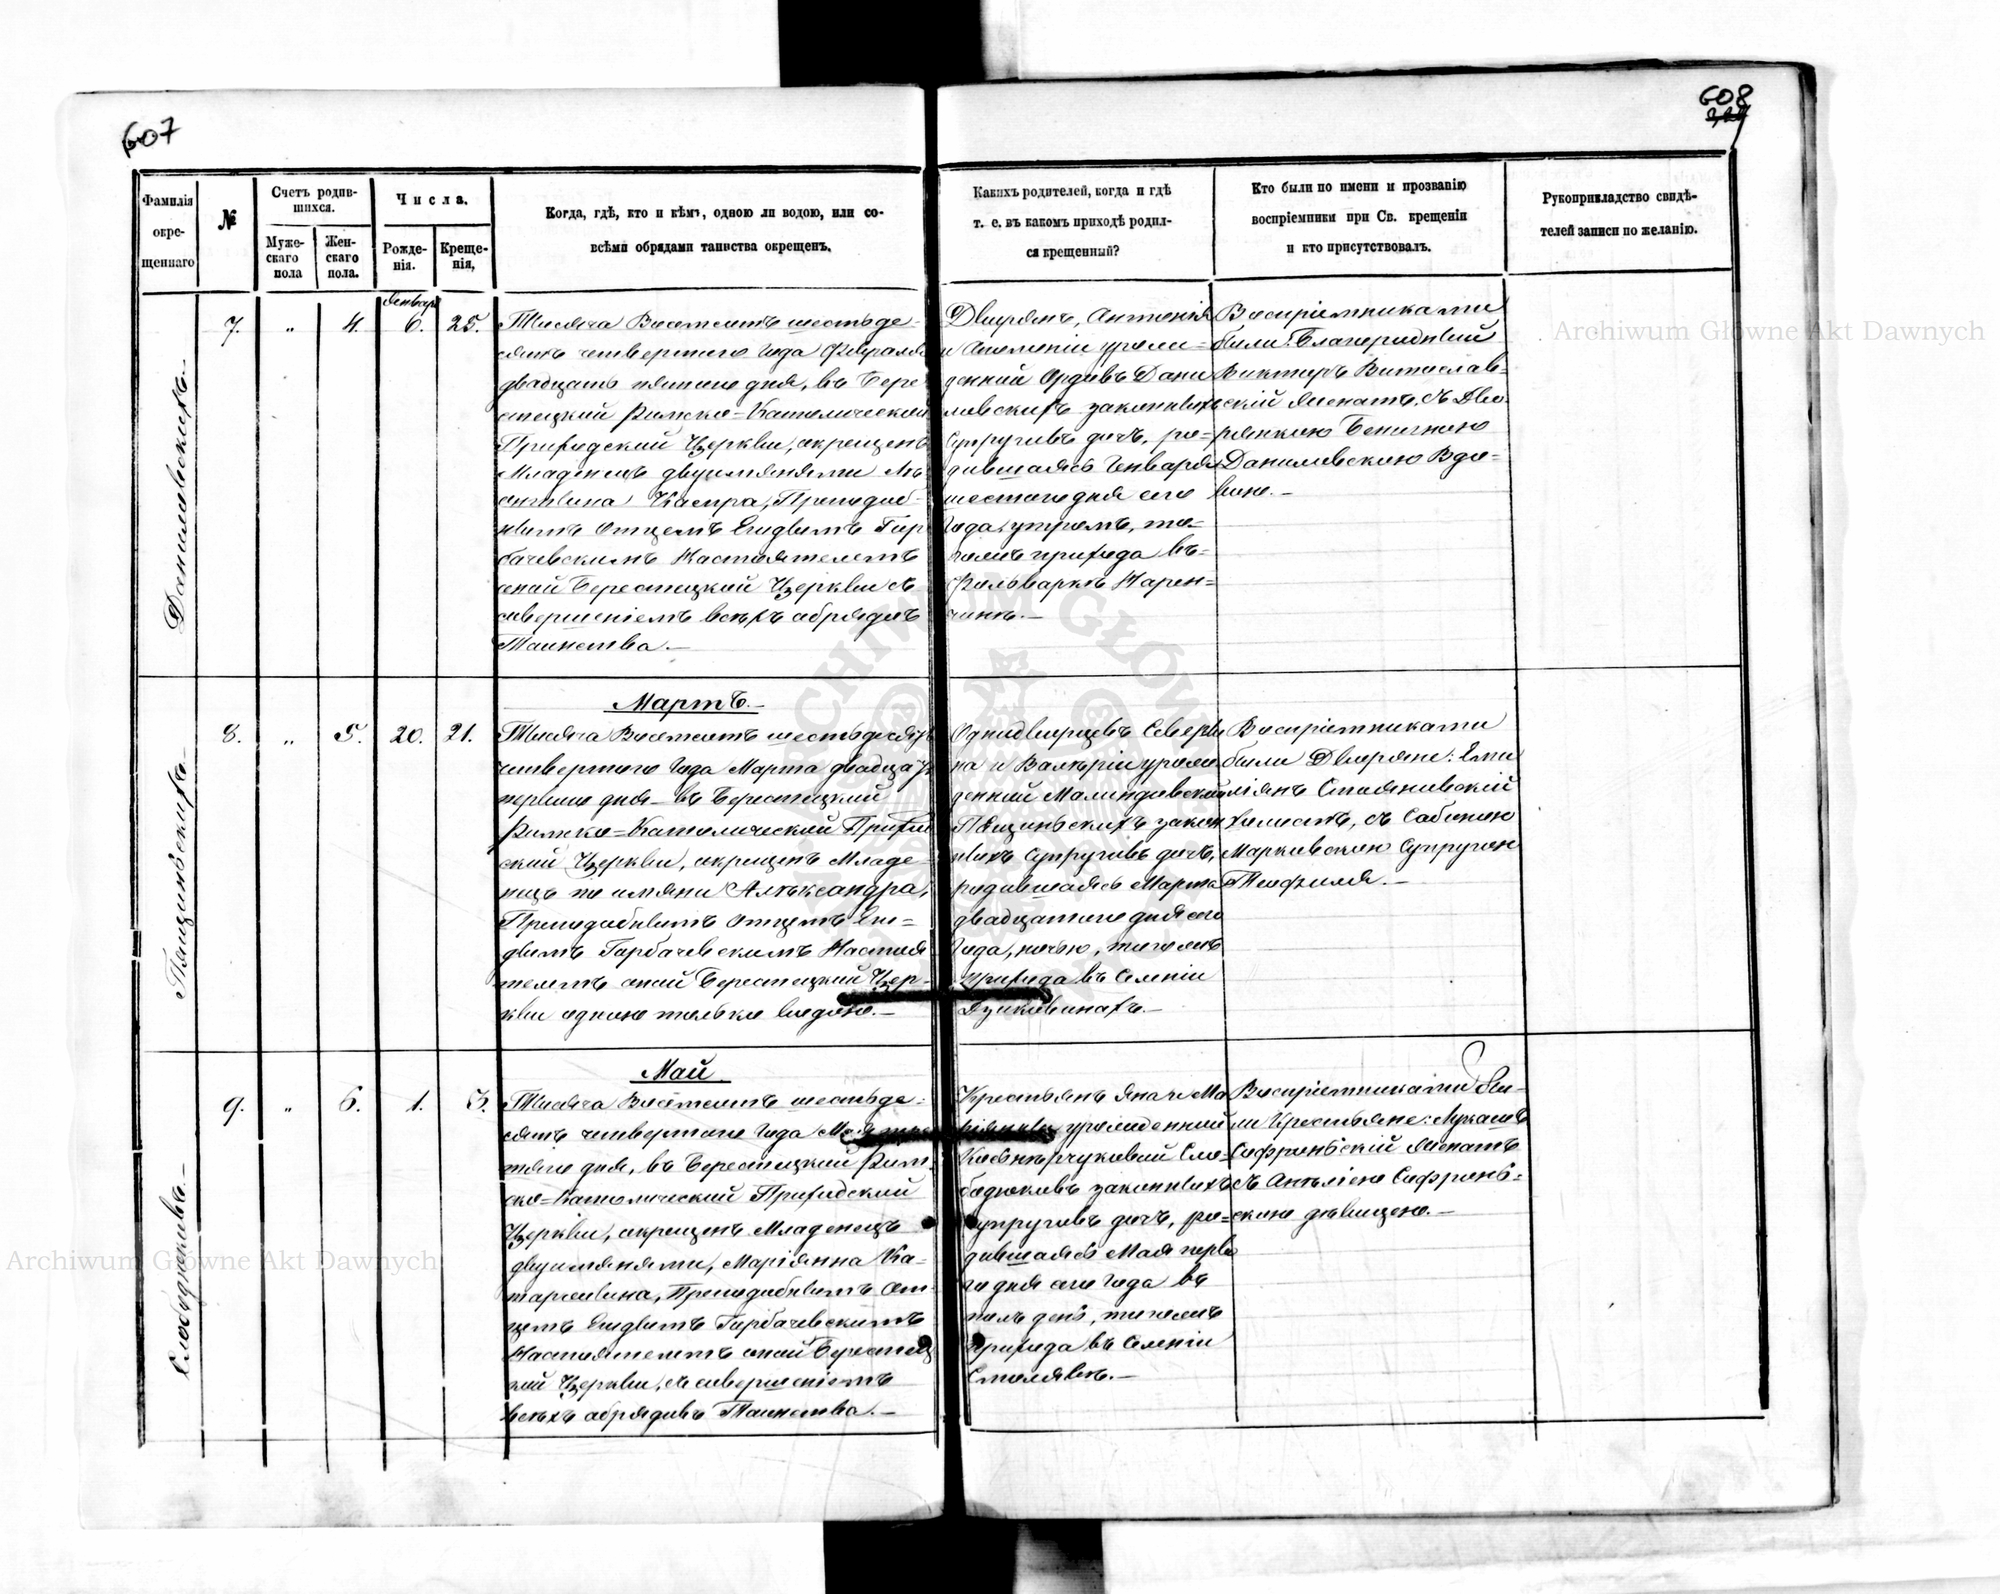 607
608
Фамилія окре-щеннаго
№
Счетъ родив-шихся.
Муже-скаго пола
Жен-скаго пола.
Числа.
Рожде-нія.
Креще-нія,
Когда, гдѣ, кто и кѣмъ, одною ли водою, или со-
всѣми обрядами таинства окрещенъ.
Какихъ родителей, когда и гдѣ
т. е. въ какомъ приходѣ родил-
ся крещенный?
Кто были по имени и прозванію
воспріемники при Св. крещеніи
и кто присутствовалъ.
Рукоприкладство свидѣ-
телей записи по желанію.
Даниловскихъ.
7. „ 4. Январ 6. 25.
Тысяча Восемсотъ шестьде-
сятъ четвертого Года Февраля
двадцать пятого дня, въ Бере-
стецкой Римско-Католической
Приходской Церкви, окрещенъ
Младенецъ двуимянями
Каспра, Преподоб-
нымъ Отцемъ Гор
бачевскимъ Настоятелемъ
оной Берестецкой Церкви съ
совершеніемъ всѣхъ обрядовъ
Таинства.—
Дворянъ, Антонія
и Аполоніи урож-
денной Данн
ловскихъ законныхъ
Супруговъ дочь, ро-
дившаяся Генваря
шестого дня сего
Года утромъ, то-
гожъ прихода въ
Фольваркѣ Нарен-
чинѣ.—
Воспріемниками
были: Благородный
Викторъ Витослав-
скій съ Дво-
рянкою Бенигною
Даниловскою Вдо-
вою.—
Пъщинскихъ.
8. „ 5. 20. 21.
Мартъ.—
Тысяча Восемсотъ шестьдесятъ
четвертого Года Марта двадцать
первого дня въ Берестецкой
Римско-Католической Приход
ской Церкви, окрещенъ Младе-
нецъ по имяни Алѣксандра,
Преподобнымъ Отцемъ
Горбачевскимъ Настоя
телемъ оной Берестецкой Цер-
кви одною только водою.—
Однодворцевъ Севери
на и Валѣріи урож
денной Малиндовской
законн
ныхъ Супруговъ дочь,
родившаяся Марта
двадцатого дня сего
Года, ночью, тогожъ
прихода въ Селеніи
Воспріемниками
были Дворяне: Еми
ліянъ Стояновскій
съ Сабиною
Марковскою Супругою
Теофиля.—
Слободюковъ.—
9. „ 6. 1. 3.
Май
Тысяча Восемсотъ шестьде-
сятъ четвертого Года Мая тре
тяго дня, въ Берестецкой Рим-
ско-Католической Приходской
Церкви, окрещенъ Младенецъ
двуимянями, Маріянна Ка-
таржина, Преподобнымъ От-
цемъ Горбачевскимъ
Настоятелемъ оной Берестец
кой Церкви, съ совершеніемъ
всѣхъ обрядовъ Таинства.—
Крестьянъ Яна и Ма
ріянны урожденной
Сло-
бодюковъ законныхъ
Супруговъ дочь, ро-
дившаяся Мая перво
го дня сего Года въ
полъ день, тогожъ
Прихода въ Селеніи
Столявѣ.—
Воспріемниками бы-
ли Крестьяне: Лукашъ
Софронѣскій
съ Анѣлею Софронѣ-
скою дѣвицею.—
Archiwum Główne Akt Dawnych
Archiwum Główne Akt Dawnych